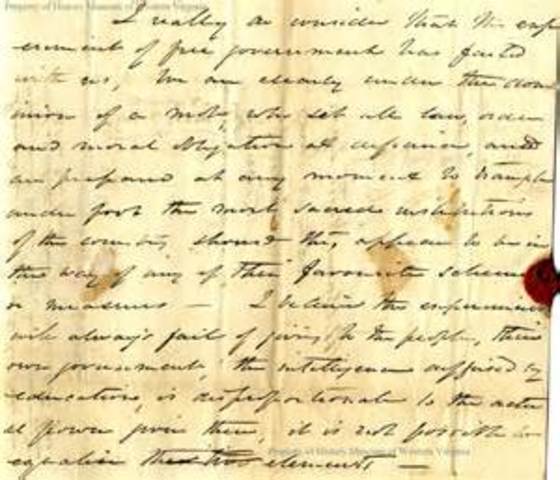 Property of History Museum of Western Virginia
I really do consider that the exp
eriment of free government has failed
with us, We are clearly under the dom
inion of a mob, who set all law, order
and moral obligation at defiance, and
are prepared at any moment to trample
under foot the most sacred institutions
of the country should they appear to be in
the way of any of their favourite schemes
or measures — I believe the experiment
will always fail of giving to the people, their
own government, the intelligence diffused by
education, is disproportionate to the actu
al power given them, it is not possible to
equalise these two elements —
Property of History Museum of Western Virginia